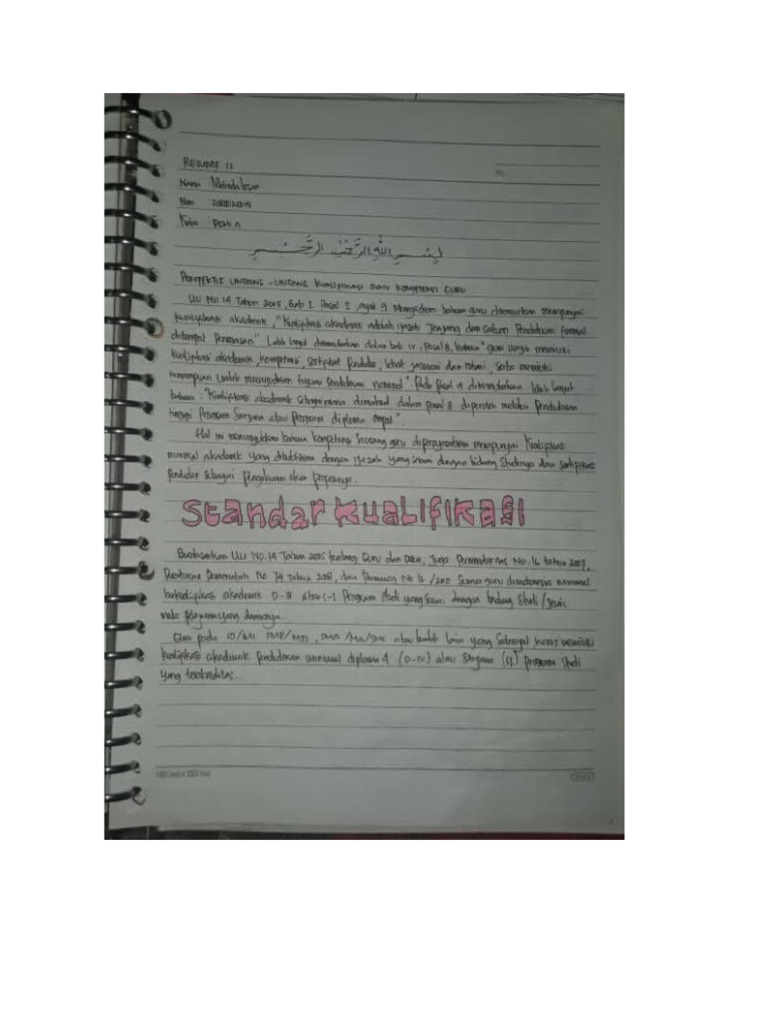 RESUME 12
No.
Nama :
Nim
Kelas :
بِسْمِ اللهِ الرَّحْمٰنِ الرَّحِيْمِ
PERSPEKTIF UNDANG-UNDANG Kualifikasi DAN KOMPETENSI GURU
UU No 14 Tahun 2005, Bab I Pasal I, ayat 9 bahwa guru mempunyai
kualifikasi akademik, "Kualifikasi akademik adalah ijazah jenjang dan satuan Pendidikan formal
ditempat Penugasan" Lebih lanjut dalam bab IV, Pasal 8, bahwa "guru wajib memiliki
kualifikasi akademik, kompetensi, sertifikat Pendidik, sehat jasmani dan rohani, serta memiliki
kemampuan untuk mewujudkan tujuan Pendidikan nasional" Pada pasal 9 lebih lanjut
bahwa : "Kualifikasi akademik sebagaimana dimaksud dalam pasal 8 diperoleh melalui Pendidikan
tinggi Program Sarjana atau Program diploma empat".
Hal ini menunjukkan bahwa kompetensi Seorang guru dipersyaratkan mempunyai Kualifikasi
minimal akademik yang dibuktikan dengan ijazah yang sesuai dengan bidang Studinya dan sertifikat
Pendidik sebagai Pengakuan akan
Standar Kualifikasi
Berdasarkan UU NO.14 Tahun 2005 tentang Guru dan Dosen, Juga Permendiknas No.16 tahun 2007,
Peraturan Pemerintah No 74 Tahun 2008, dan No 16/2010 Seorang guru minimal
berkualifikasi akademik D-IV atau S-1 Program Studi yang Sesuai dengan bidang Studi/Jenis
mata pelajaran yang
Guru pada SD/MI SMP/MTS, SMA/MA/SMK atau bentuk lain yang Sederajat harus memiliki
kualifikasi akademik Pendidikan minimal diploma 4 (D-IV) atau Sarjana (S1) program Studi
yang terakreditas.